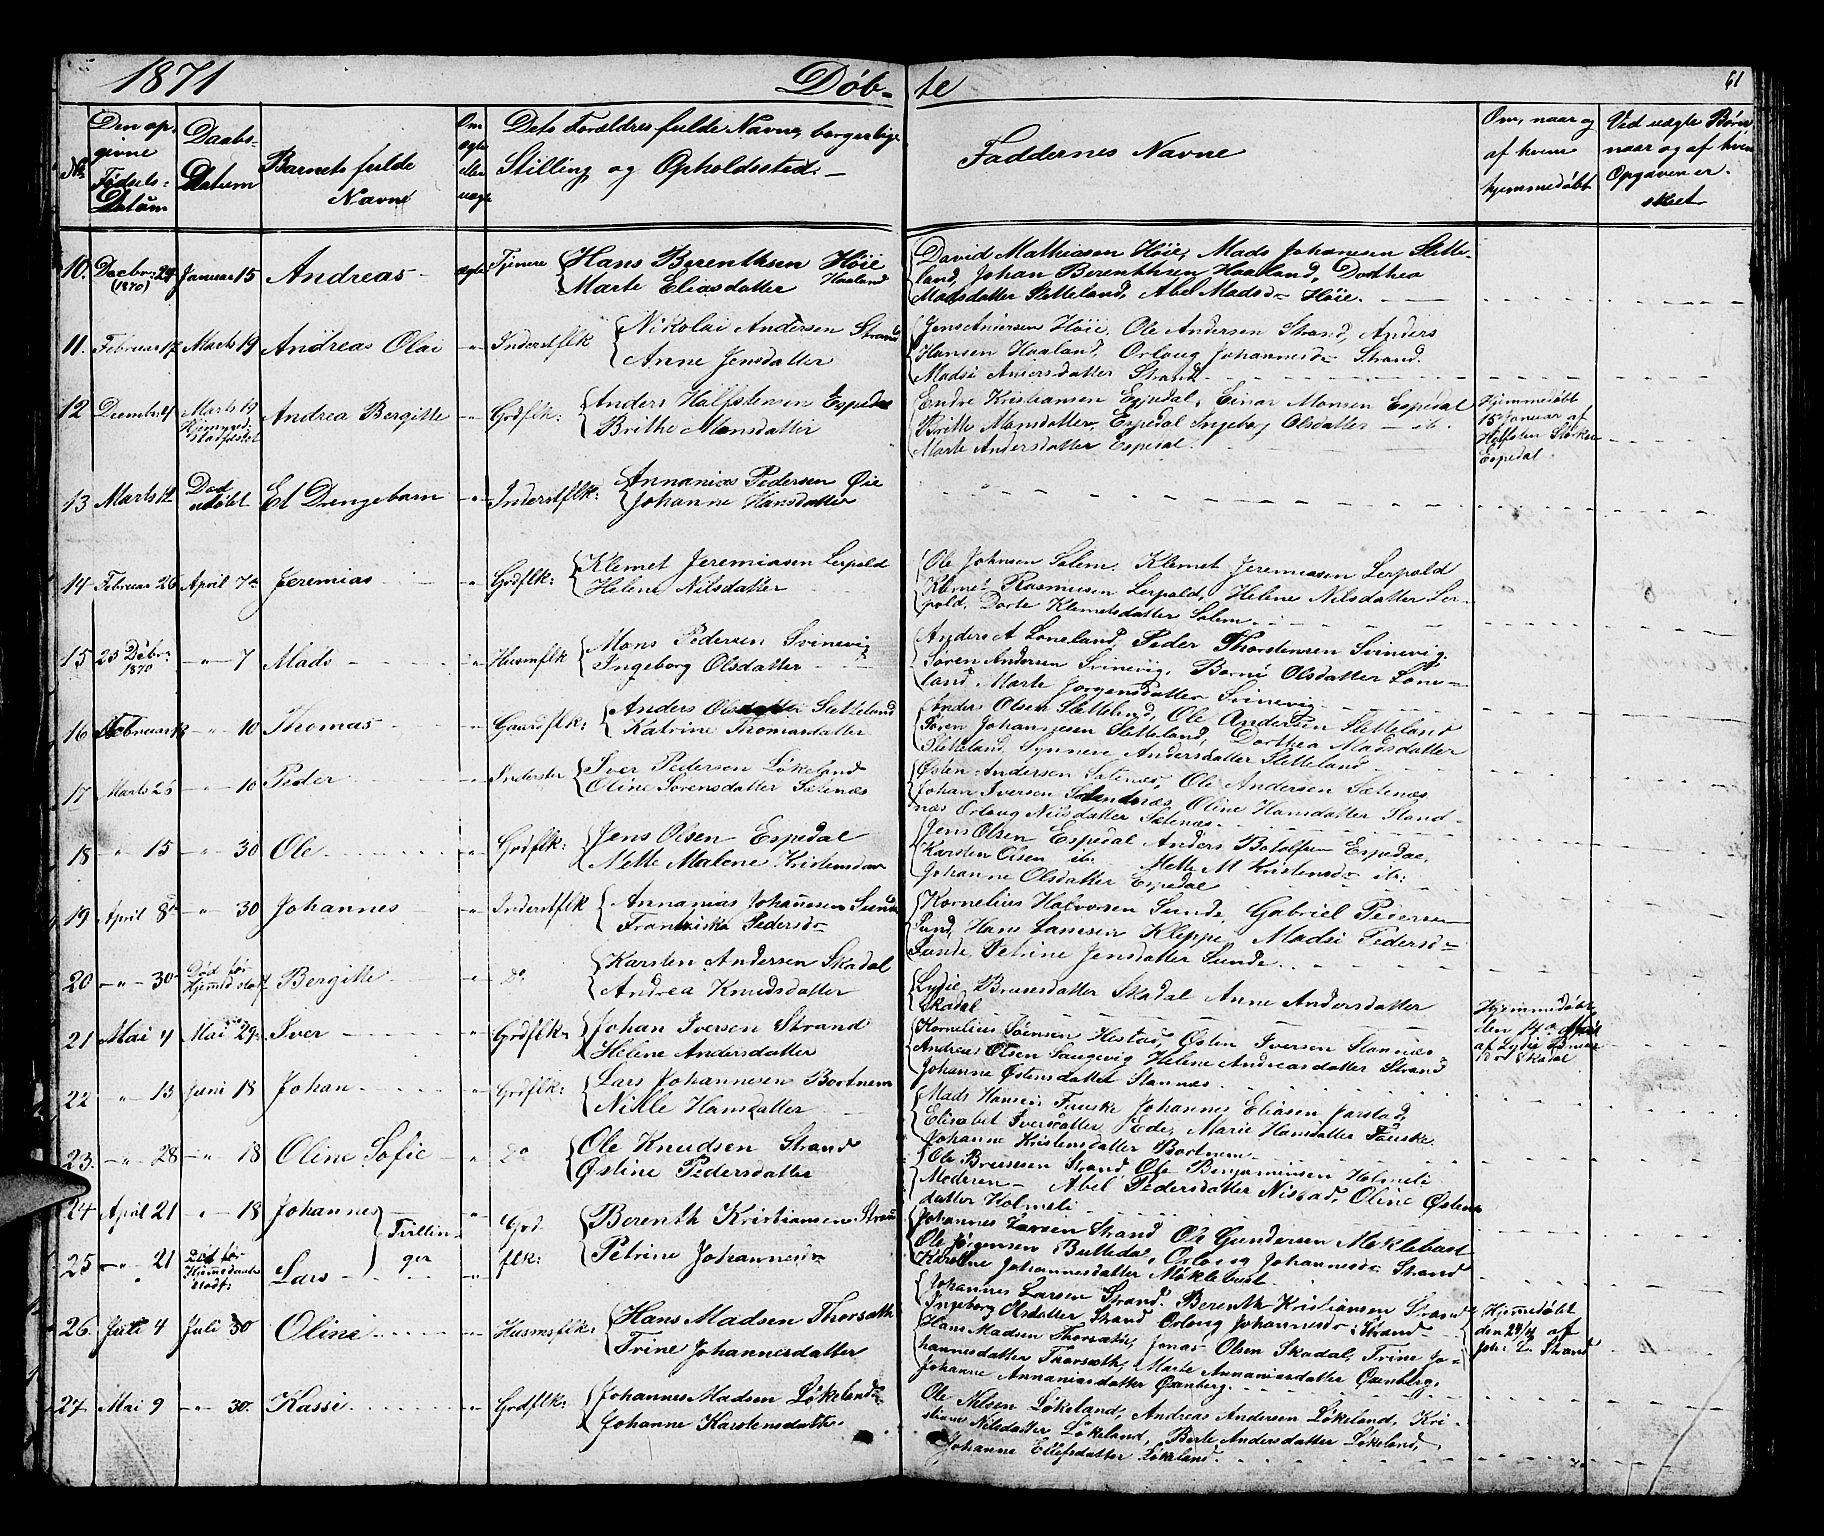 1871 Døb- te 61
No. Den opgivne Fødsels-Datum Daabs-Datum Barnets fulde Navne Om ægte eller uægte Dets Forældres fulde Navne, borgerlige Stilling og Opholdssted.- Faddernes Navne Om, naar og af hvem hjemmedøbt Ved uægte Børn naar og af hvem Opgaven er skeet
10. Decbr: 29 (1870) Januar 15 Andreas ægte Tjenere Hans Berenthsen Høie
Marte Eliasdatter Haaland
David Mathiasen Høie, Mads Johannesen Slette-
land, Johan Berenthsen Haaland, Dorthea
Madsdatter Sletteland, Abel Madsd- Høie.
11. Februar 17 Marts 19 Andreas Olai -"- Inderstflk Nikolai Andersen Strand
Anne Jensdatter
Jens Andersen Høie, Ole Andersen Strand, Anders
Hansen Haaland, Orloug Johannesd- Strand.
Madsi Andersdatter Strand
12 Decembr: 4 Marts 19 Hjemmed: stadfestet Andrea Bergitte -"- Grdflk: Anders Halfstensen Espedal
Brithe Monsdatter
Endre Kristiansen Espedal, Einar Monsen Espedal
Britte Monsdatter, Espedal Ingeborg Olsdatter - ib.
Marte Andersdatter Espedal.
Hjemmedøbt
15 Januar af
Halfsten
Espedal
13 Marts 12 Død udøbt Et Drengebarn -"- Inderstflk: Annanias Pedersen Øie
Johanne Hansdatter
14 Februar 26 April 7de Jeremias " Grdflk: Klemet Jeremiasen Lerpold
Helene Nilsdatter
Ole Johnsen Solem. Klemet Jeremiasen Lerpold
Rasmusen Lerpold, Helene Nilsdatter Ler-
pold, Dorte Klemetsdatter Solem.
15 25 Debr: 1870 -"- 7 Mads " Husmflk Mons Pedersen Svinevig
Ingeborg Olsdatter
Anders A Loneland, Peder Thorstensen Svinevig.
Søren Andersen Svinevig, Berne Olsdatter Lone-
land Marte Jorgensdatter Svinevig
16 Februar 13 -"- 10 Thomas " Gaardflk: Anders Olsdatter Sletteland
Katrine Thomasdatter
Anders Olsen Sletteland, Ole Andersen Sletteland
Søren Johannesen Sletteland, Dorthea Madsdatter
Sletteland, Synneve Andersdatter Sletteland
17 Marts 25 -"- 10 Peder " Inderster Iver Pedersen Løkeland
Oline Sørensdatter Sætenæs
Østen Andersen Sætenæs, Ole Andersen Sætenæs
Johan Iversen Standnæs, Oline Hansdatter Stand-
næs Orloug Nilsdatter Sætenæs
18 " 15 -"- 30 Ole -"- Grdflk: Jens Olsen Espedal
Mette Malene Kristensdatr
Jens Olsen Espedal Anders Botolfsen Espedal,
Karsten Olsen ib. Mette M Kristensd- ib:
Johanne Olsdatter Espedal
19 April 8de -"- 30 Johannes -"- Inderstflk Annanias Johannesen Sunde
Frantziska Pedersd-
Kornelius Halvorsen Sunde, Gabriel Pedersen
Sund, Hans Larsen Kleppe, Madsi Pedersd-
Sunde, Petrine Jensdatter Sunde.
20 -"- 30 Død før Hjemd stadf Bergitte " Do Karsten Andersen Skadal
Andrea Knudsdatter
Lydie Brunesdatter Skadal Anne Andersdatter
Skadal
Hjemmedøbt
den 14de
af Lydie
Skadal
21 Mai 4 Mai 29: Iver " Grdflk: Johan Iversen Strand
Helene Andersdatter
Kornelius Hestad, Østen Iversen Stannæs
Andreas Olsen Saugevig Helene Andreasdatter Strand
Johanne Østensdatter Stannæs
22 " 13 Juni 18 Johan " Grdflk: Lars Johannesen Bortnem
Nille Hansdatter
Mads Hansen Fauske Johannes Eliasen Jarstad,
Elisabet Iversdatter Ede, Marie Hansdatter Fauske.
Johanne Kristensdatter Bortnem
23. -"- 28 -"- 18 Oline Sofie " Do Ole Knudsen Strand
Østine Pedersdatter
Ole Strand Ole Benjaminsen Holmeli
Moderen - Abel Pedersdatter Nistad, Oline Østens
datter Holmeli
24 April 21 " 18 Johannes " Grd Berenth Kristiansen Strand
Johannes Larsen Strand Ole Gundersen Møklebust
25 -"- 21 Død før Hjemmedaabs stadf: Lars Tvillinger " flk: Petrine Johannesd-
Ole Bulleda, Orloug Johannesd- Strand
Johannesdatter Møklebust
Johannes Larsen Strand. Berenth Kristiansen Strand
Ingeborg Olsdatter Strand Orloug Johannesd- Strand
Hjemmedøbt
den 24/4 af
Joh: L. Strand
26. Juli 4 Juli 30 Oline " Husmsflk: Hans Madsen Thorsæth
Trine Johannesdatter
Hans Madsen Thorsæth, Jonas Olsen Skadal, Trine Jo-
hannesdatter Thorsæth, Marte Annaniasdatter Øxenberg,
Johanne Annaniasdatter Øxenberg.
27. Mai 9 -"- 30. Kassi " Grdflk: Johannes Madsen Løkeland
Johanne Karstensdatter
Ole Nilsen Løkeland, Andreas Andersen Løkeland, Kri-
stiane Nilsdatter Løkeland, Berte Andersdatter Løkeland,
Johanne Ellefsdatter Løkeland.